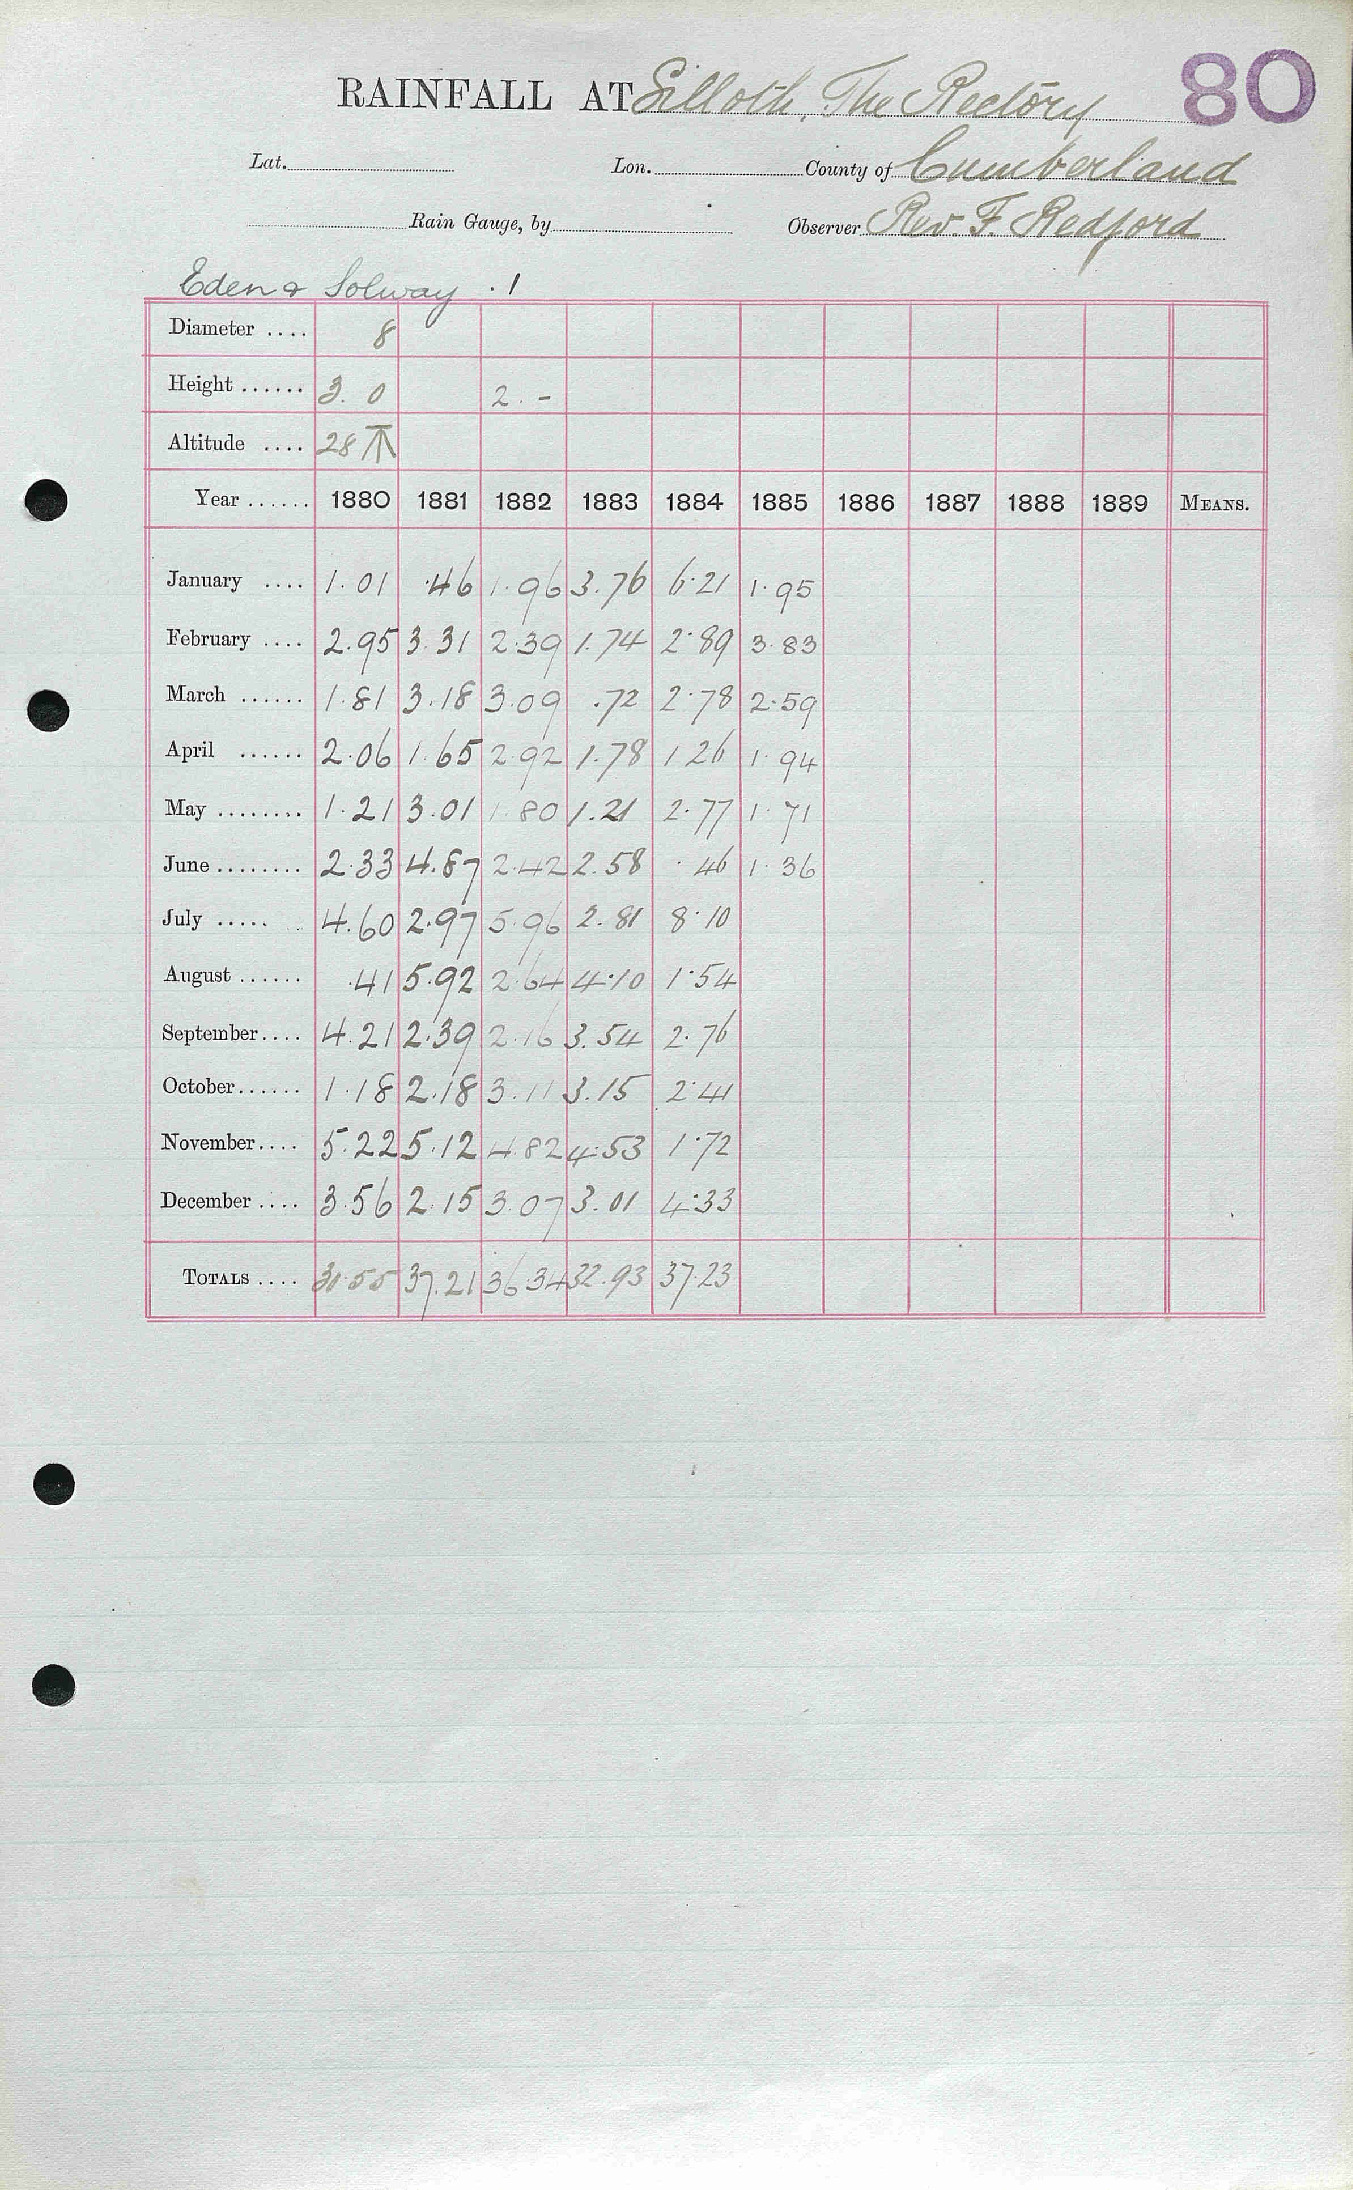 80
RAINFALL AT Silloth, The Rectory
Lat. Lon. County of Cumberland
Rain Gauge, by Observer Rev. F. Redford
Eden & Solway . 1
Diameter .... 8
Height ...... 3. 0 2. -
Altitude .... 28
Year ...... 1880 1881 1882 1883 1884 1885 1886 1887 1888 1889 MEANS.
January .... 1.01 .46 1.96 3.76 6.21 1.95
February .... 2.95 3.31 2.39 1.74 2.89 3.83
March ...... 1.81 3.18 3.09 .72 2.78 2.59
April ...... 2.06 1.65 2.92 1.78 1 26 1.94
May ........ 1.21 3.01 1.80 1.21 2.77 1.71
June ........ 2.33 4.87 2.42 2.58 .46 1.36
July ..... 4.60 2.97 5.96 2.81 8.10
August ...... .41 5.92 2.64 4.10 1.54
September .... 4.21 2.39 2.16 3.54 2.76
October ...... 1.18 2.18 3.11 3.15 2.41
November .... 5.22 5.12 4.82 4.53 1.72
December .... 3.56 2.15 3.07 3.01 4.33
TOTALS .... 30.55 37.21 36.34 32.93 37.23